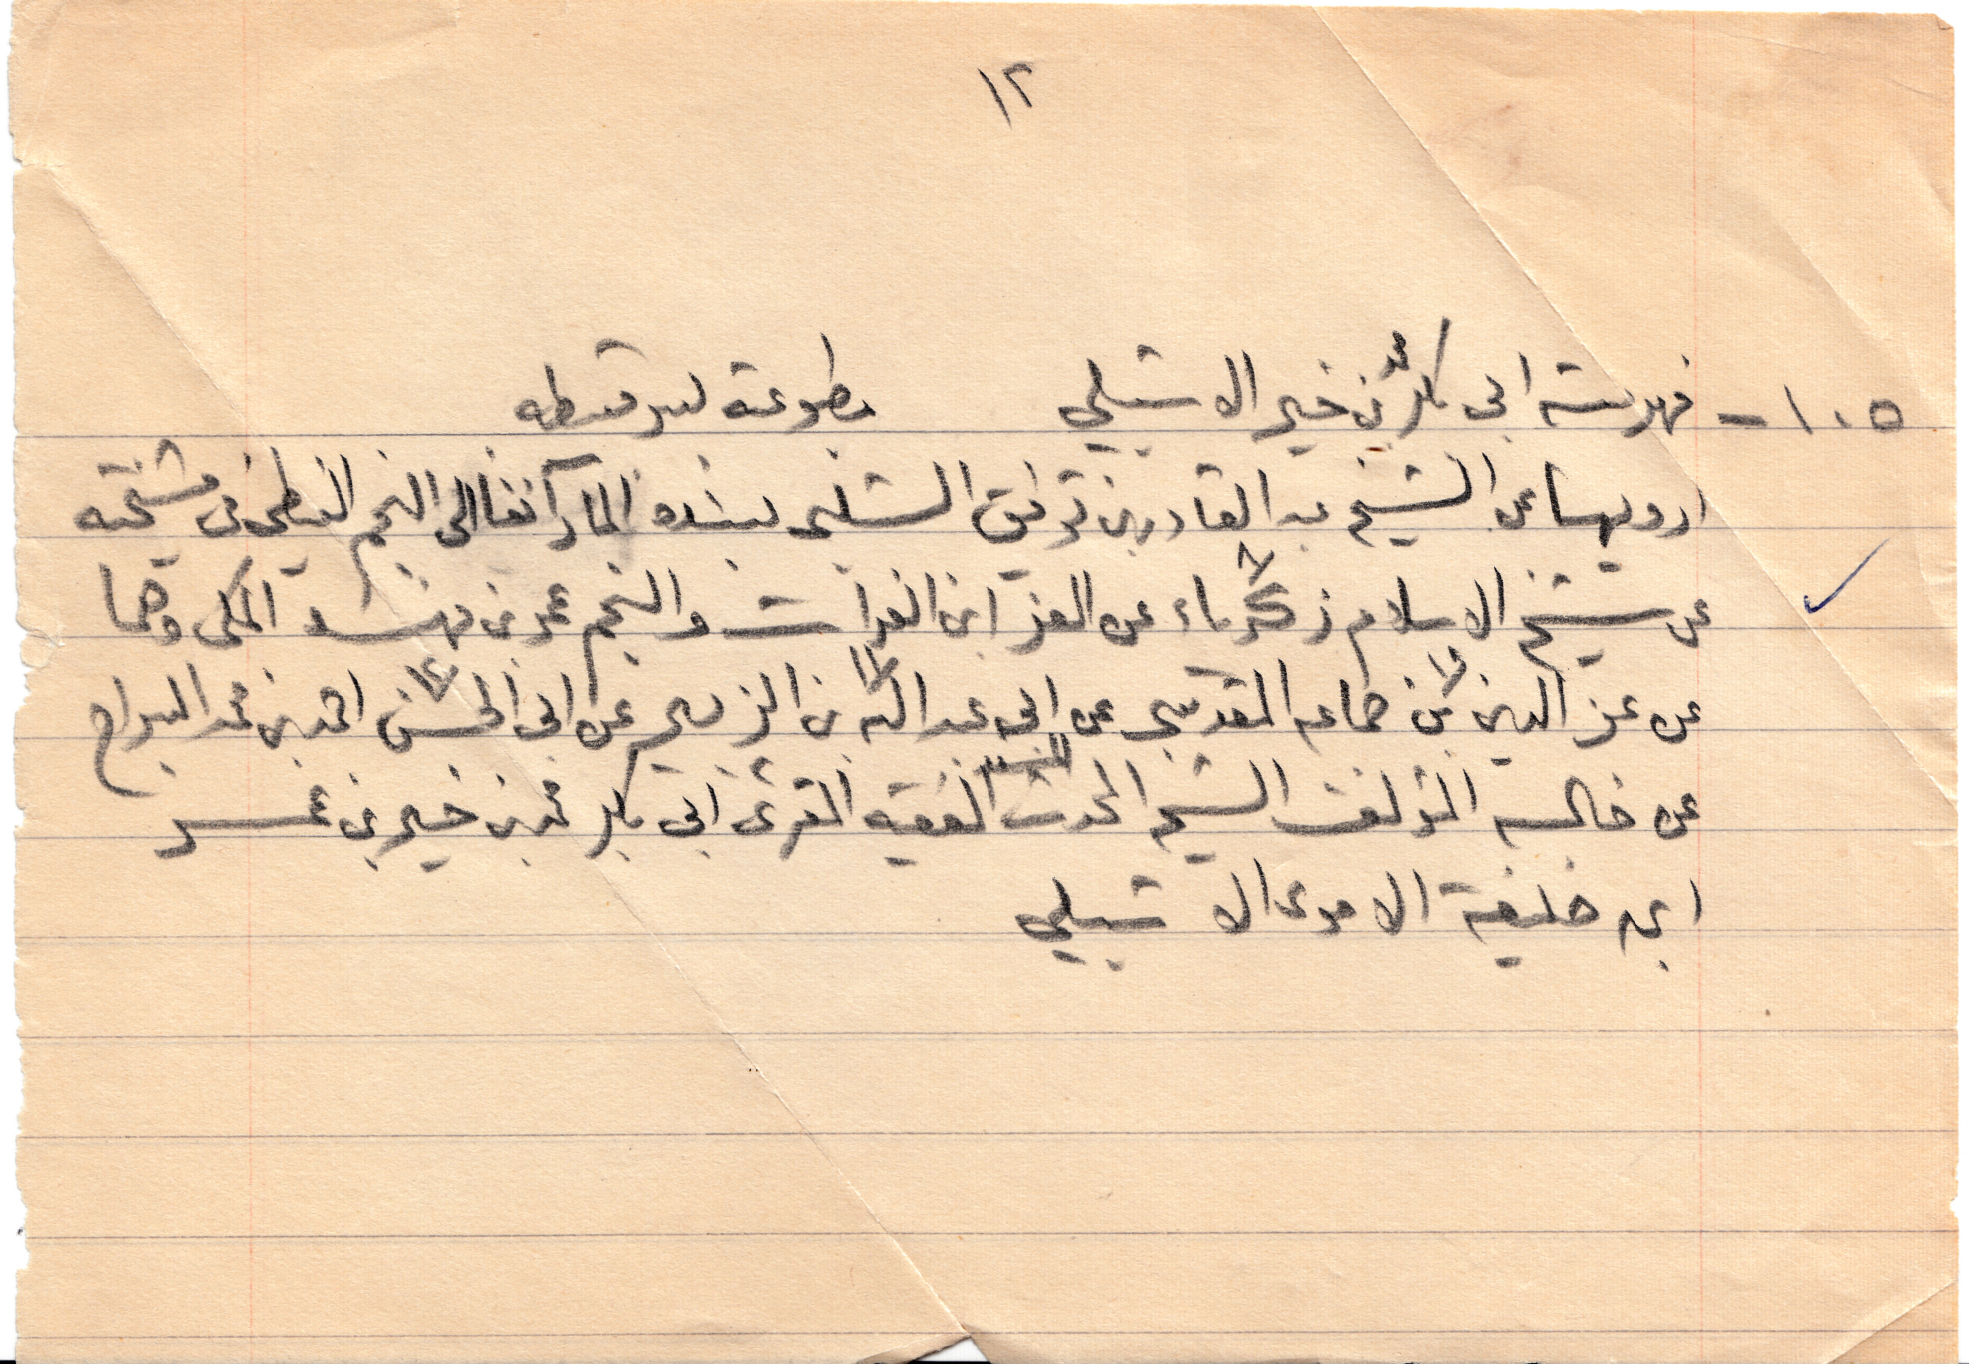 ١٢
١٠٥ - فهرسة ابى بكر محمد بن خير الاشبيلي مطبوعة بسرقسطه
ارويها عن الشيخ عبد القادر بن توفيق الشلبي بسنده المار آنفا الى النجم الغيطي في مشيخته
عن شيخ الاسلام زكرياء عن العز ابن الفرات والنجم عمر بن فهد المكى وهما
عن عز الدين بن جماعه المقدسي عن ابى عبد الله بن الزبير عن ابى الحسن احمد بن محمد السراج
عن خاله المؤلف الشيخ المحدث الفقيه المقرئ ابى بكر محمد بن خير بن عمر
ابن خليفة الاموى الاشبيلي